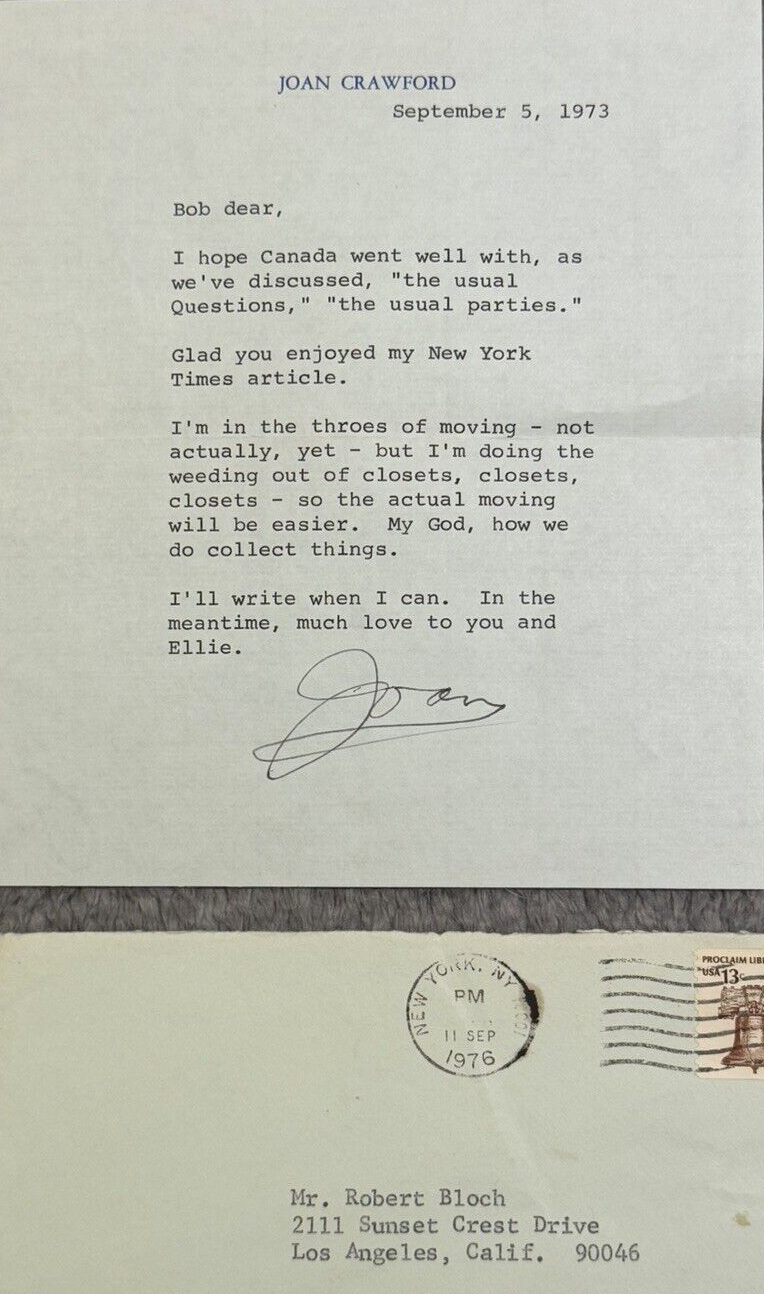 JOAN CRAWFORD
September 5, 1973
Bob dear,
I hope Canada went well with, as
we've discussed, "the usual
Questions," "the usual parties."
Glad you enjoyed my New York
Times article.
I'm in the throes of moving - not
actually, yet - but I'm doing the
weeding out of closets, closets,
closets - so the actual moving
will be easier. My God, how we
do collect things.
I'll write when I can. In the
meantime, much love to you and
Ellie.
Joan
NEW YORK, NY
PM
11 SEP
1976
PROCLAIM LIB
USA 13c
Mr. Robert Bloch
2111 Sunset Crest Drive
Los Angeles, Calif. 90046